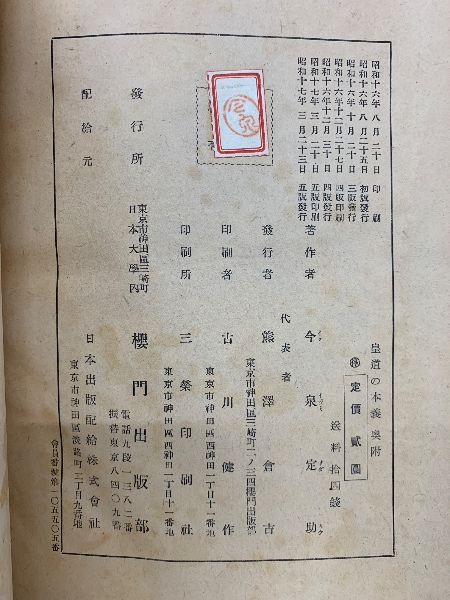 皇道の本義奥附
㊞ 定價貳圓
送料拾四錢
昭和十六年八月二十日印刷
昭和十六年八月二十五日初版發行
昭和十六年十月二十日三版發行
昭和十六年十二月二十七日四版印刷
昭和十六年十二月三十日四版發行
昭和十七年三月二十日五版印刷
昭和十七年三月二十三日五版發行
著作者 今泉定助
代表者
發行者 熊澤倉吉
東京市神田區三崎町二ノ三四櫻門出版部
印刷者 古川健作
東京市神田區西神田二丁目十一番地
印刷所 三榮印刷社
東京市神田區西神田二丁目十一番地
發行所
東京市神田區三崎町
日本大學內
櫻門出版部
電話九段一三八二番
振替東京八四〇九番
配給元
日本出版配給株式會社
東京市神田區淡路町二丁目九番地
會員番號第一〇五五〇五番